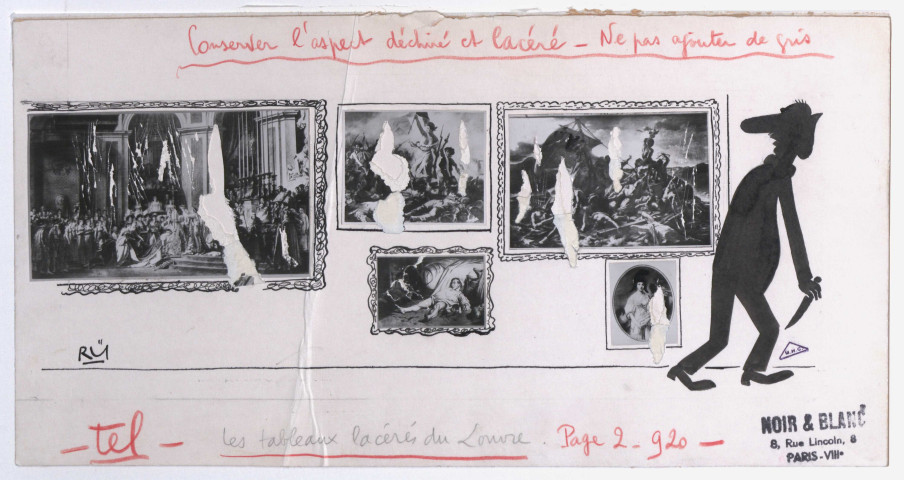 Conserver l'aspect déchiré et lacéré – Ne pas ajouter de gris
RÜ
M.H.C.
– tel – les tableaux lacérés du Louvre. Page 2 – 920 –
NOIR & BLANC
8, Rue Lincoln, 8
PARIS-VIIIe